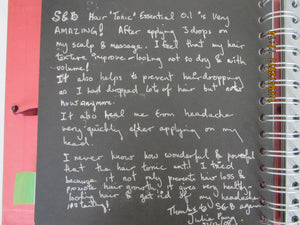 S&B Hair "Tonic" Essential 0.1 is Very
AMAZING! After applying 3 drops on
my scalp & massage. I feel that my hair
texture improve – looking not so dry & with
volume!
It also helps to prevent hair dropping
as I had dropped lots of hair but not
now anymore.
It also heal me from headache
very quickly after applying on my
head.
I never know how wonderful & powerful
that the hair tonic until I tried
because it not only prevents hair loss &
promote hair growth, it gives very healthy-
looking hair & get rid of my headache
instantly!
Thanks to S&B again
Julie